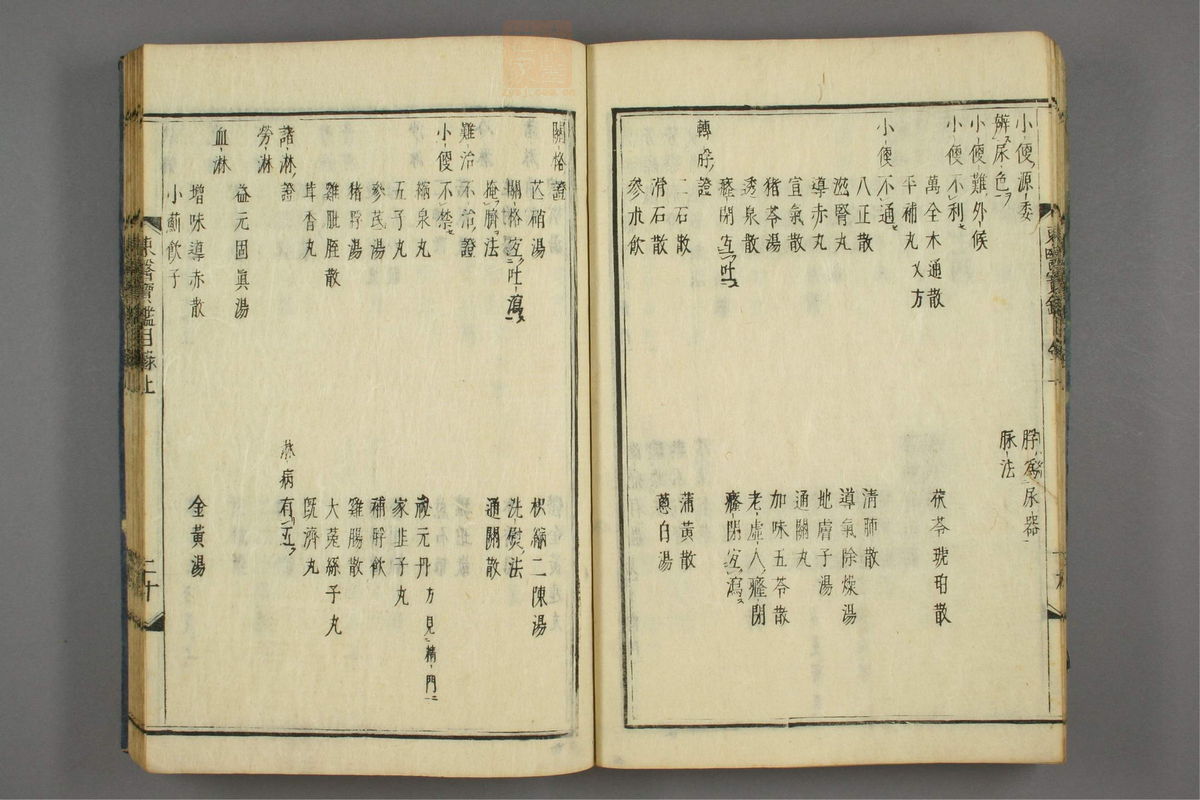 小便源委
脬爲尿器
辨尿色
脉法
小便難外候
小便不利
萬全木通散
茯苓琥珀散
平補丸 又方
小便不通
八正散
清肺散
滋腎丸
導氣除燥湯
導赤丸
地膚子湯
宣氣散
通關丸
猪苓湯
加味五苓散
透泉散
老虛人癃閉
癃閉宜吐
癃閉宜瀉
轉脬證
二石散
蒲黄散
滑石散
葱白湯
參朮飲
關格證
芒硝湯
枳縮二陳湯
關格宜吐瀉
洗熨法
掩臍法
通關散
難治不治證
小便不禁
縮泉丸
秘元丹 方見精門
五子丸
家韭子丸
參芪湯
補脬飲
猪脬湯
雞腸散
雞肶胵散
大菟絲子丸
茸香丸
既濟丸
諸淋證
淋病有五
勞淋
益元固眞湯
血淋
增味導赤散
金黄湯
小薊飲子
東醫寶鑑目録上
二十